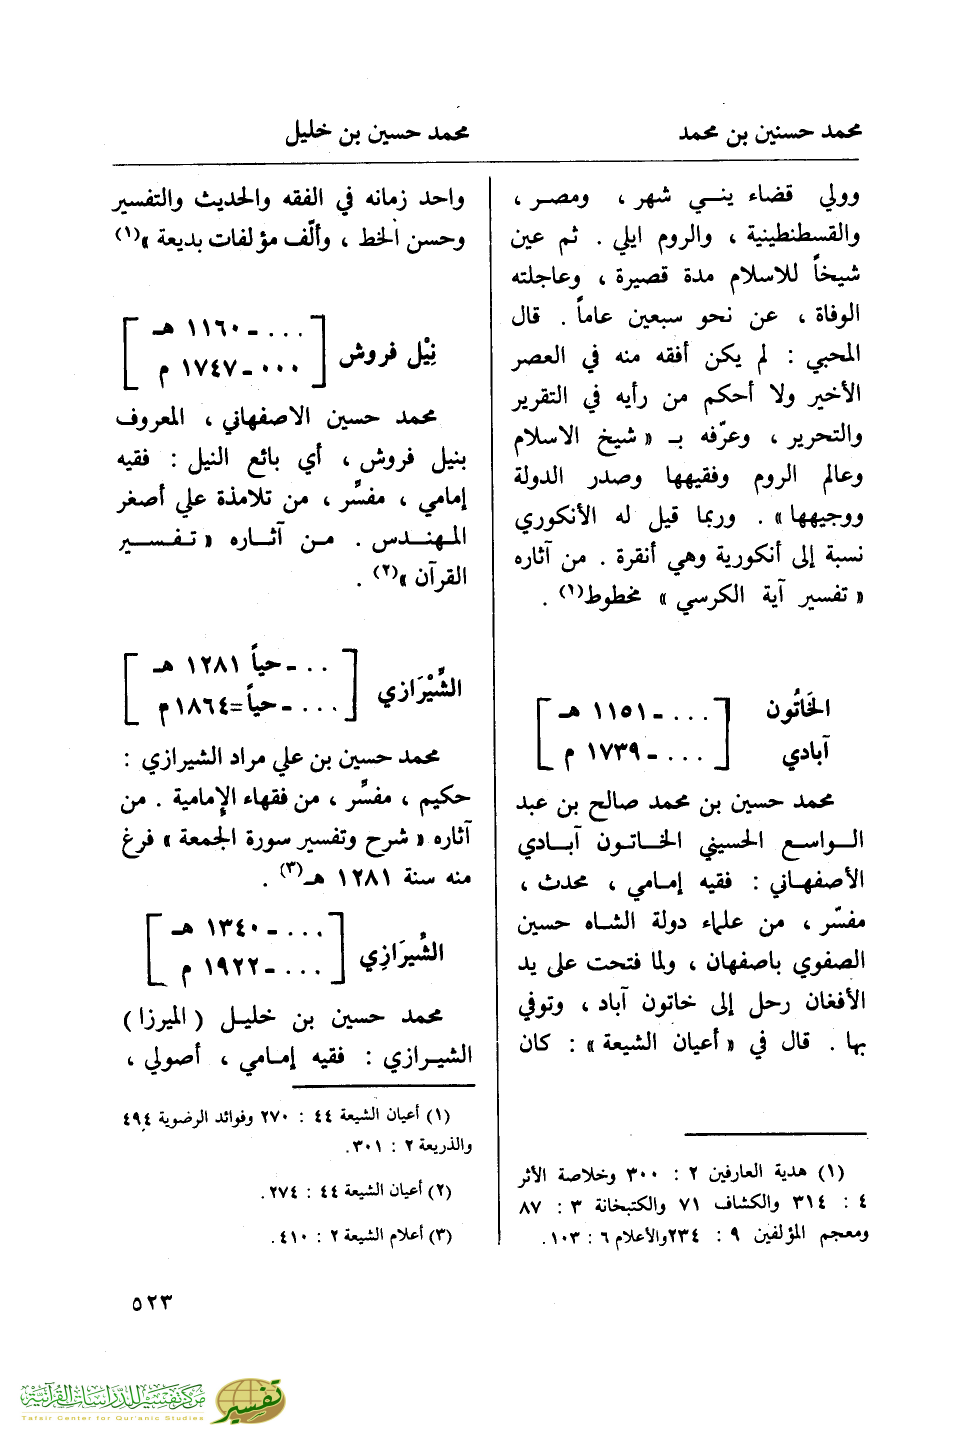 محمد حسنين بن محمد
محمد حسين بن خليل
وولي قضاء يني شهر ، ومصر ،
والقسطنطينية ، والروم ايلي . ثم عين
شيخاً للاسلام مدة قصيرة ، وعاجلته
الوفاة ، عن نحو سبعين عاماً . قال
المحبي : لم يكن أفقه منه في العصر
الأخير ولا أحكم من رأيه في التقرير
والتحرير ، وعرّفه بـ « شيخ الاسلام
وعالم الروم وفقيهها وصدر الدولة
ووجيهها » . وربما قيل له الأنكوري
نسبة إلى أنكورية وهي أنقرة . من آثاره
« تفسير آية الكرسي » مخطوط(١) .
الخَاتُون
آبادي
[ . . . - ١١٥١ هـ
. . . - ١٧٣٩ م ]
محمد حسين بن محمد صالح بن عبد
الواسع الحسيني الخاتون آبادي
الأصفهاني : فقيه إمامي ، محدث ،
مفسّر ، من علماء دولة الشاه حسين
الصفوي باصفهان ، ولما فتحت على يد
الأفغان رحل إلى خاتون آباد ، وتوفي
بها . قال في « أعيان الشيعة » : كان
(١) هدية العارفين ٢ : ٣٠٠ وخلاصة الأثر
٤ : ٣١٤ والكشاف ٧١ والكتبخانة ٣ : ٨٧
ومعجم المؤلفين ٩ : ٢٣٤ والأعلام ٦ : ١٠٣ .
واحد زمانه في الفقه والحديث والتفسير
وحسن الخط ، وألّف مؤلفات بديعة »(١)
نِيْل فروش
[ . . . - ١١٦٠ هـ
٠٠٠ - ١٧٤٧ م ]
محمد حسين الاصفهاني ، المعروف
بنيل فروش ، أي بائع النيل : فقيه
إمامي ، مفسِّر ، من تلامذة علي أصغر
المهندس . من آثاره « تفسير
القرآن »(٢) .
الشِّيْرَازي
[ . . . - حياً ١٢٨١ هـ
. . . - حياً = ١٨٦٤ م ]
محمد حسين بن علي مراد الشيرازي :
حكيم ، مفسِّر ، من فقهاء الإمامية . من
آثاره « شرح وتفسير سورة الجمعة » فرغ
منه سنة ١٢٨١ هـ(٣) .
الشِّيرَازِي
[ . . . - ١٣٤٠ هـ
. . . - ١٩٢٢ م ]
محمد حسين بن خليل ( الميرزا )
الشيرازي : فقيه إمامي ، أصولي ،
(١) أعيان الشيعة ٤٤ : ٢٧٠ وفوائد الرضوية ٤٩٤
والذريعة ٢ : ٣٠١ .
(٢) أعيان الشيعة ٤٤ : ٢٧٤ .
(٣) أعلام الشيعة ٢ : ٤١٠ .
٥٢٣
مركز تفسير للدراسات القرآنية
Tafsir Center for Qur'anic Studies
تفسير